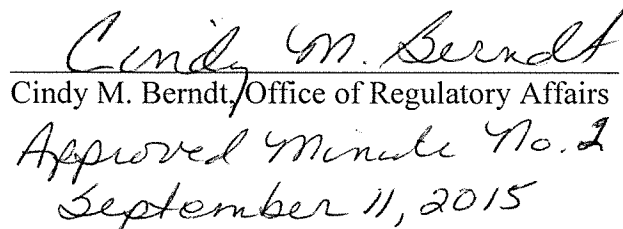 Cindy M. Berndt
Cindy M. Berndt, Office of Regulatory Affairs
Approved Minute No. 2
September 11, 2015